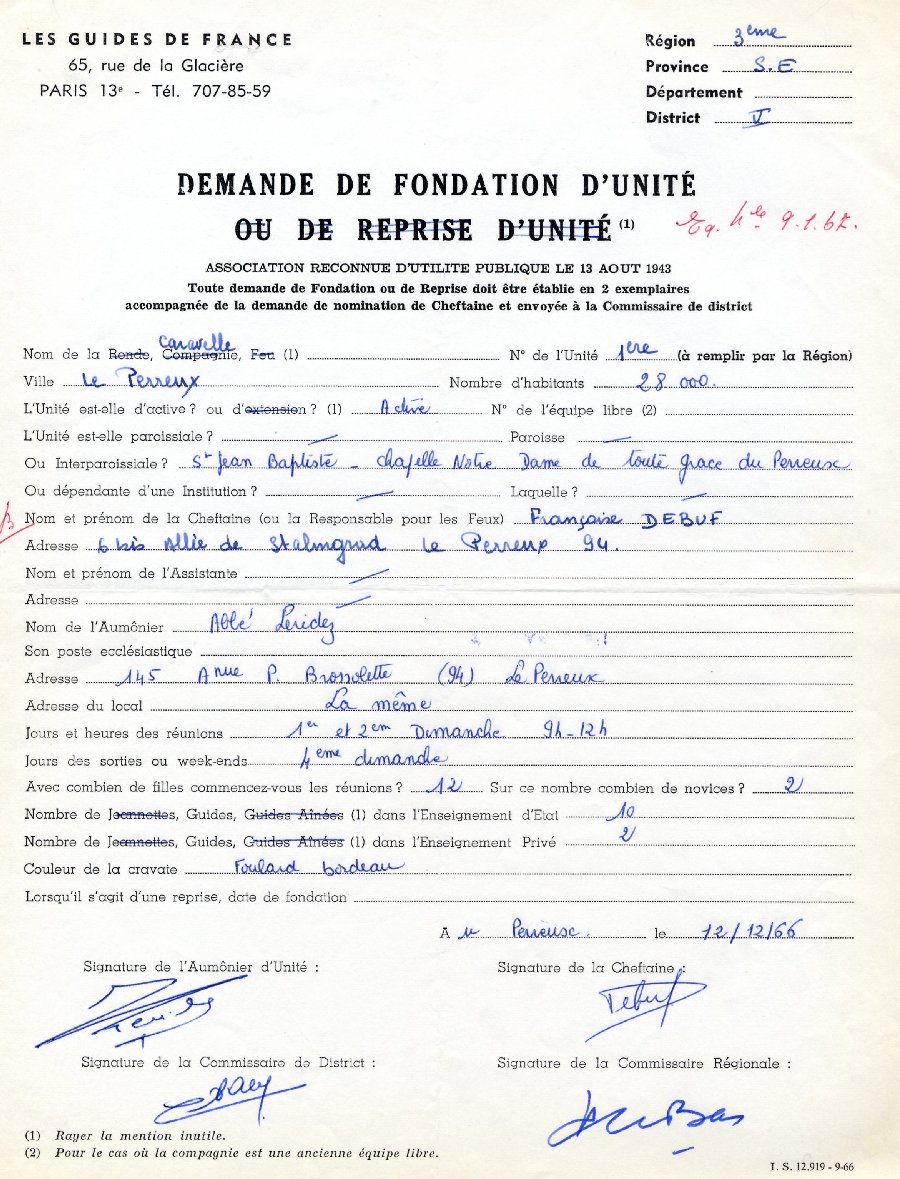 LES GUIDES DE FRANCE
65, rue de la Glacière
PARIS 13e - Tél. 707-85-59
Région 3eme
Province S.E
Département
District V
DEMANDE DE FONDATION D'UNITÉ
OU DE REPRISE D'UNITÉ (1)
9.1.67.
ASSOCIATION RECONNUE D'UTILITE PUBLIQUE LE 13 AOUT 1943
Toute demande de Fondation ou de Reprise doit être établie en 2 exemplaires
accompagnée de la demande de nomination de Cheftaine et envoyée à la Commissaire de district
Caravelle
Nom de la Ronde, Compagnie, Feu (1) N° de l'Unité 1ere (à remplir par la Région)
Ville Le Perreux Nombre d'habitants 28 000.
L'Unité est-elle d'active ? ou d'extension ? (1) Active N° de l'équipe libre (2)
L'Unité est-elle paroissiale ? — Paroisse —
Ou Interparoissiale ? St Jean Baptiste - chapelle Notre Dame de toute grace du Perreux
Ou dépendante d'une Institution ? — Laquelle ? —
Nom et prénom de la Cheftaine (ou la Responsable pour les Feux) Françoise DEBUF
Adresse 6 bis Allie de Stalingrad Le Perreux 94.
Nom et prénom de l'Assistante —
Adresse —
Nom de l'Aumônier Abbé Leridez
Son poste ecclésiastique
Adresse 145 Anue P. Brossolette (94) Le Perreux
Adresse du local La même
Jours et heures des réunions 1er et 2em Dimanche 9h-12h
Jours des sorties ou week-ends 4eme dimanche
Avec combien de filles commencez-vous les réunions ? 12 Sur ce nombre combien de novices ? 2
Nombre de Jeannettes, Guides, Guides Aînées (1) dans l'Enseignement d'Etat 10
Nombre de Jeannettes, Guides, Guides Aînées (1) dans l'Enseignement Privé 2
Couleur de la cravate Foulard bordeau
Lorsqu'il s'agit d'une reprise, date de fondation
A Perreux. le 12/12/66
Signature de l'Aumônier d'Unité :
Signature de la Cheftaine :
Debuf
Signature de la Commissaire de District :
Signature de la Commissaire Régionale :
(1) Rayer la mention inutile.
(2) Pour le cas où la compagnie est une ancienne équipe libre.
I. S. 12.919 - 9-66